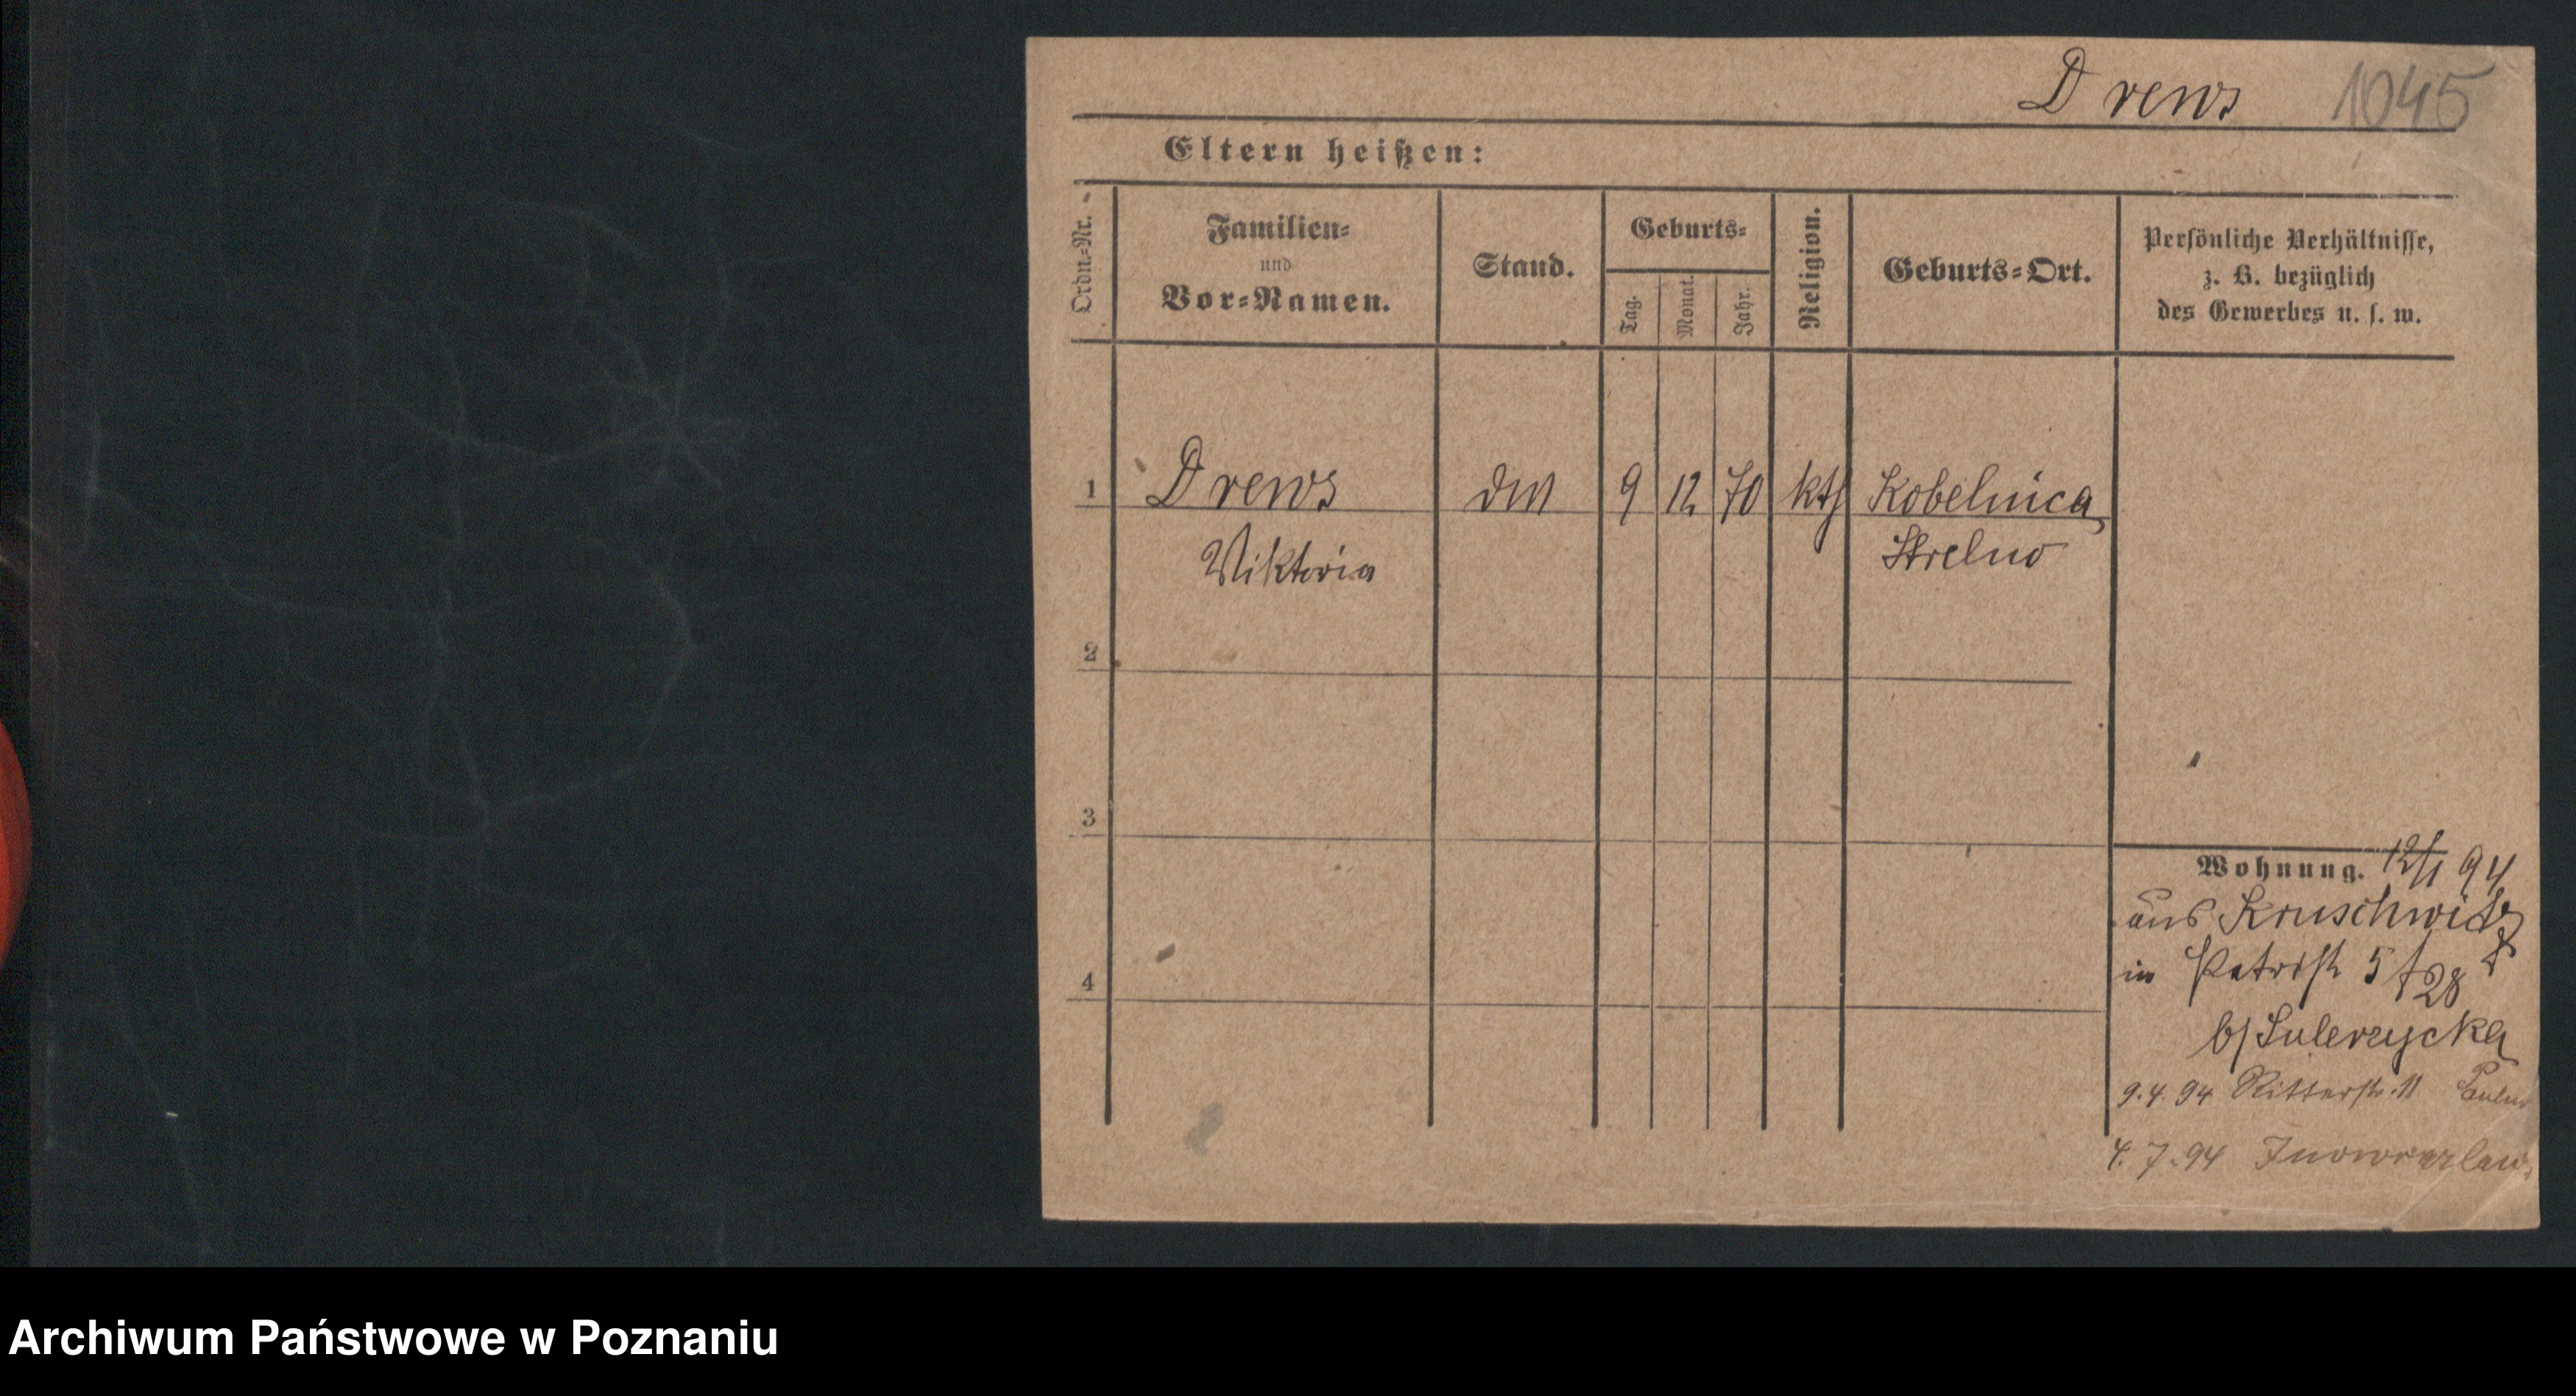 Drews 1045
Eltern heißen:
Ordn.-Nr.
Familien-
und
Vor-Namen.
Stand.
Geburts-
Tag.
Monat.
Jahr.
Religion.
Geburts-Ort.
Persönliche Verhältnisse,
z. B. bezüglich
des Gewerbes u. s. w.
1 Drews 9 12 70 kth Kobelnica
Viktoria Strelno
2
3
4
Wohnung. 12/1 94
aus Kruschwitz
in Petrist 5
b/ Sulerzycka
9.4.94 Ritterstr. 11
4.7.94 Inowrazlaw
Archiwum Państwowe w Poznaniu